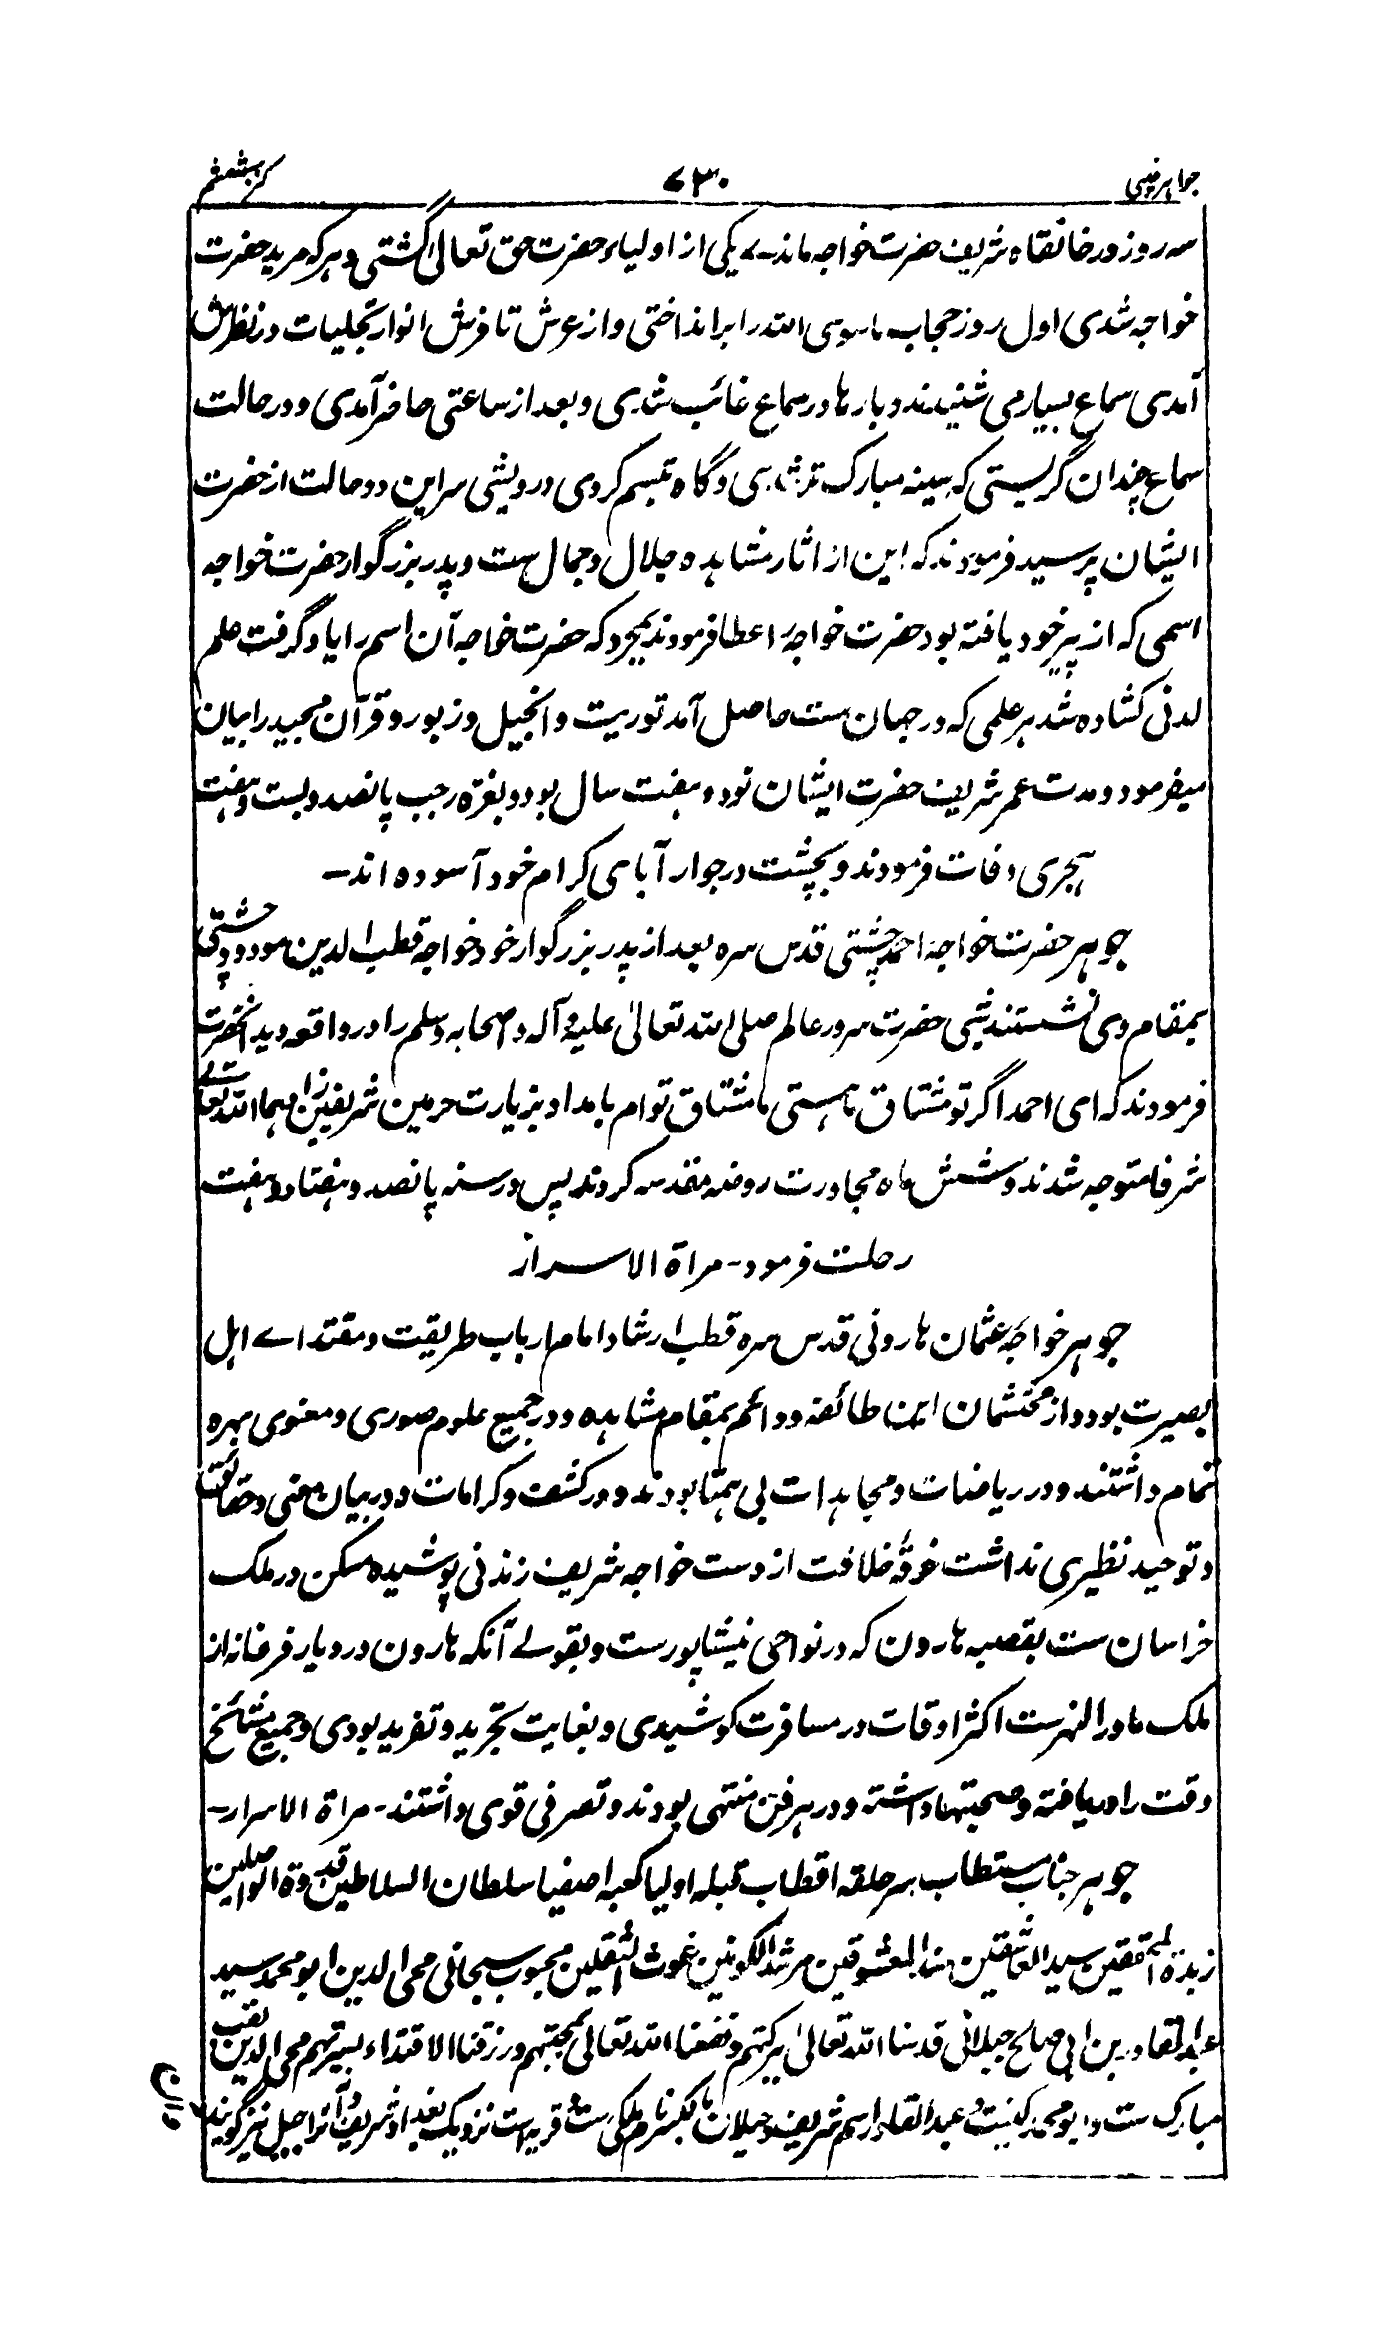 جواهر غیبی ۷۳۰ کنز هشتم
سه روز در خانقاه شریف حضرت خواجه ماندے یکی از اولیاء حضرت حق تعالی گشتی و هر که مرید حضرت
خواجه شدی اول روز حجاب ماسوی الله را بر انداختی و از عرش تا فرش انوار تجلیات در نظرش
آمدی سماع بسیار می شنیدند و بارها در سماع غائب شدی و بعد از ساعتی حاضر آمدی و در حالت
سماع چندان گریستی که سینه مبارک تر شدی و گاه تبسم کردی درویشی سر این دو حالت از حضرت
ایشان پرسید فرمودند که این از اثار مشاهده جلال و جمال ست و پدر بزرگوار حضرت خواجه
اسمی که از پیر خود یافته بود حضرت خواجه را عطا فرمودند بمجرد که حضرت خواجه آن اسم را یاد گرفت علم
لدنی کشاده شد هر علمی که در جهان ست حاصل آمد توریت و انجیل و زبور و قرآن مجید را بیان
میفرمود و مدت عمر شریف حضرت ایشان نود و هفت سال بود و بغره رجب پانصد و بست و هفت
هجری وفات فرمودند و بچشت در جوار آبای کرام خود آسوده اند۔
جوهر حضرت خواجه احمد چشتی قدس سره بعد از پدر بزرگوار خود خواجه قطب الدین مودود چشتی
بمقام وی نشستند شبی حضرت سرور عالم صلی الله تعالیٰ علیه و آله و اصحابه وسلم را در واقعه دید آنحضرت
فرمودند که ای احمد اگر تو مشتاق ما هستی ما مشتاق تو ام بامداد بزیارت حرمین شریفین زادهما الله تعالے
شرفا متوجه شدند و شش ماه مجاورت روضه مقدسه کردند پس در سنه پانصد و هفتاد و هفت
رحلت فرمود۔ مراة الاسرار
جوهر خواجه عثمان هارونی قدس سره قطب ارشاد امام ارباب طریقت و مقتداے اهل
بصیرت بود و از محتشمان این طائفه و دائم بمقام مشاهده و در جمیع علوم صوری و معنوی بهره
تمام داشتند و در ریاضات و مجاهدات بی همتا بودند و در کشف و کرامات و در بیان معنی و حقائق
و توحید نظیری نداشت خرقه خلافت از دست خواجه شریف زندنی پوشیده مسکن در ملک
خراسان ست بقصبه هارون که در نواحی نیشاپورست و بقولے آنکه هارون در دیار فرغانه از
ملک ماوراالنهرست اکثر اوقات در مسافرت کوشیدی و بغایت تجرید و تفرید بودی و جمیع مشائخ
وقت را دریافته و صحبتها داشته و در هر فن منتهی بودند و تصرفی قوی داشتند۔ مراة الاسرار۔
جوهر جناب مستطاب سر حلقه اقطاب قبله اولیا کعبه اصفیا سلطان السلاطین قدوة الواصلین
زبدة المحققین سید العاشقین سند المعشوقین مرشد الکونین غوث الثقلین محبوب سبحانی محی الدین ابو محمد سید
عبد القادر بن ابی صالح جیلانی قدسنا الله تعالیٰ ببرکتهم و نفعنا الله تعالی بمحبتهم و رزقنا الاقتداء بسیرتهم محی الدین لقب
مبارک ست و ابو محمد کنیت و عبد القادر اسم شریف و جیلان بالکسر نام ملکی ست و قریه ایست نزدیک بغداد شریف و آنرا جیل نیز گویند